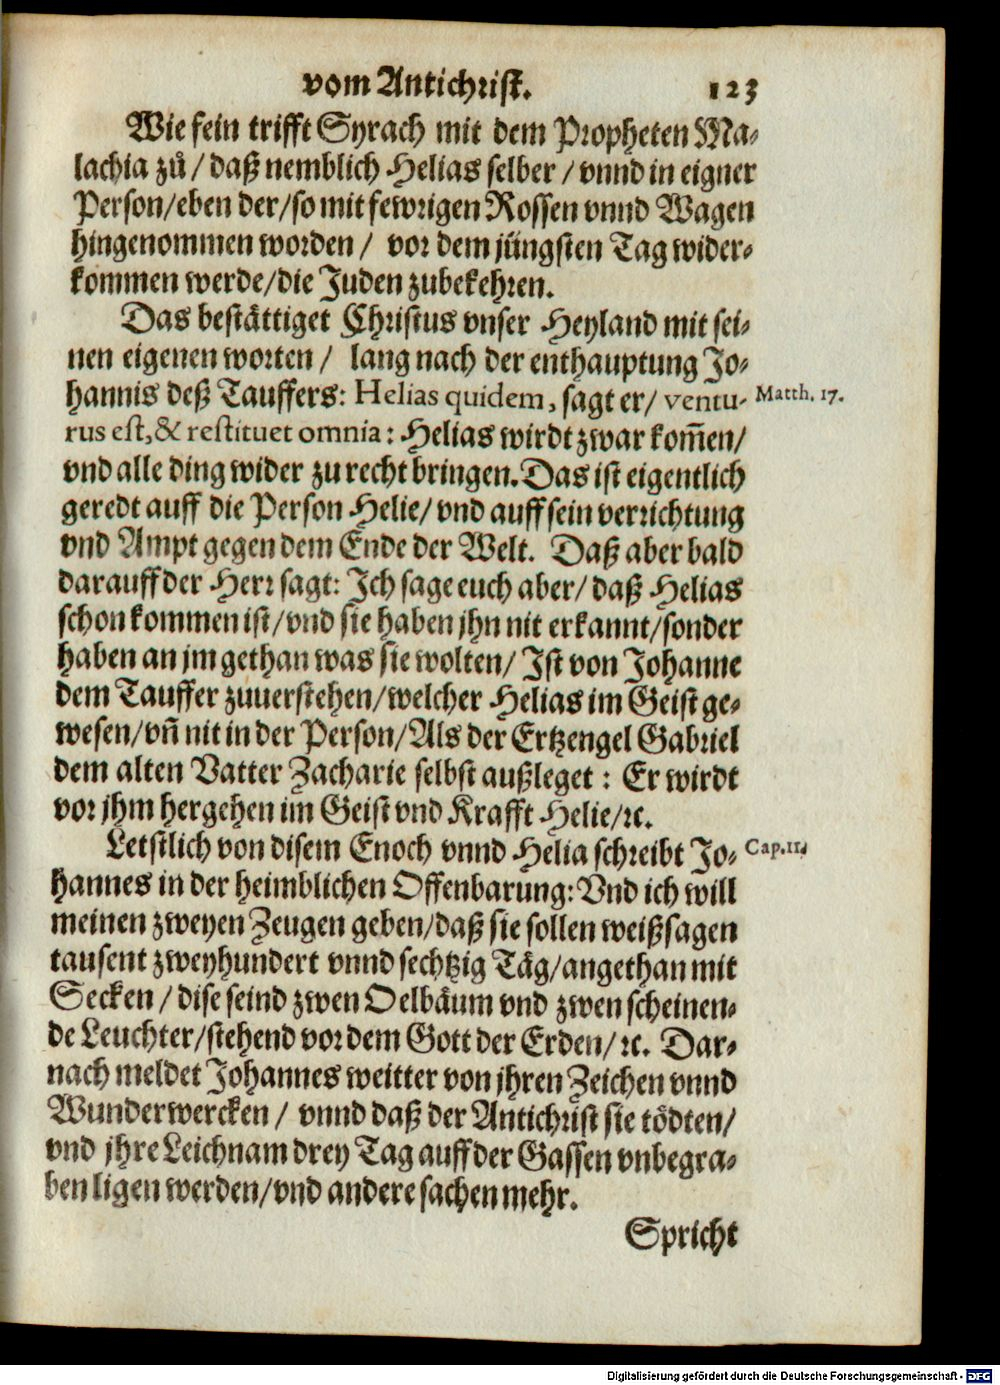 vom Antichrist. 123
Wie fein trifft Syrach mit dem Propheten Ma-
lachia zů / daß nemblich Helias selber / vnnd in eigner
Person/eben der/so mit fewrigen Rossen vnnd Wagen
hingenommen worden / vor dem jüngsten Tag wider-
kommen werde/die Juden zubekehren.
Das bestättiget Christus vnser Heyland mit sei-
nen eigenen worten / lang nach der enthauptung Jo-
hannis deß Tauffers: Helias quidem, sagt er/ ventu- Matth. 17.
rus est, & restituet omnia: Helias wirdt zwar kom̃en/
vnd alle ding wider zu recht bringen. Das ist eigentlich
geredt auff die Person Helie/ vnd auff sein verrichtung
vnd Ampt gegen dem Ende der Welt. Daß aber bald
darauff der Herr sagt: Ich sage euch aber/ daß Helias
schon kommen ist/vnd sie haben jhn nit erkannt/sonder
haben an jm gethan was sie wolten/ Ist von Johanne
dem Tauffer zuuerstehen/welcher Helias im Geist ge-
wesen/vñ nit in der Person/Als der Ertzengel Gabriel
dem alten Vatter Zacharie selbst außleget : Er wirdt
vor jhm hergehen im Geist vnd Krafft Helie/ꝛc.
Letstlich von disem Enoch vnnd Helia schreibt Jo- Cap. 11.
hannes in der heimblichen Offenbarung: Vnd ich will
meinen zweyen Zeugen geben/daß sie sollen weißsagen
tausent zweyhundert vnnd sechtzig Täg/angethan mit
Secken / dise seind zwen Oelbäum vnd zwen scheinen-
de Leuchter/stehend vor dem Gott der Erden/ ꝛc. Dar-
nach meldet Johannes weitter von jhren Zeichen vnnd
Wunderwercken / vnnd daß der Antichrist sie tödten/
vnd jhre Leichnam drey Tag auff der Gassen vnbegra-
ben ligen werden/vnd andere sachen mehr.
Spricht
Digitalisierung gefördert durch die Deutsche Forschungsgemeinschaft - DFG